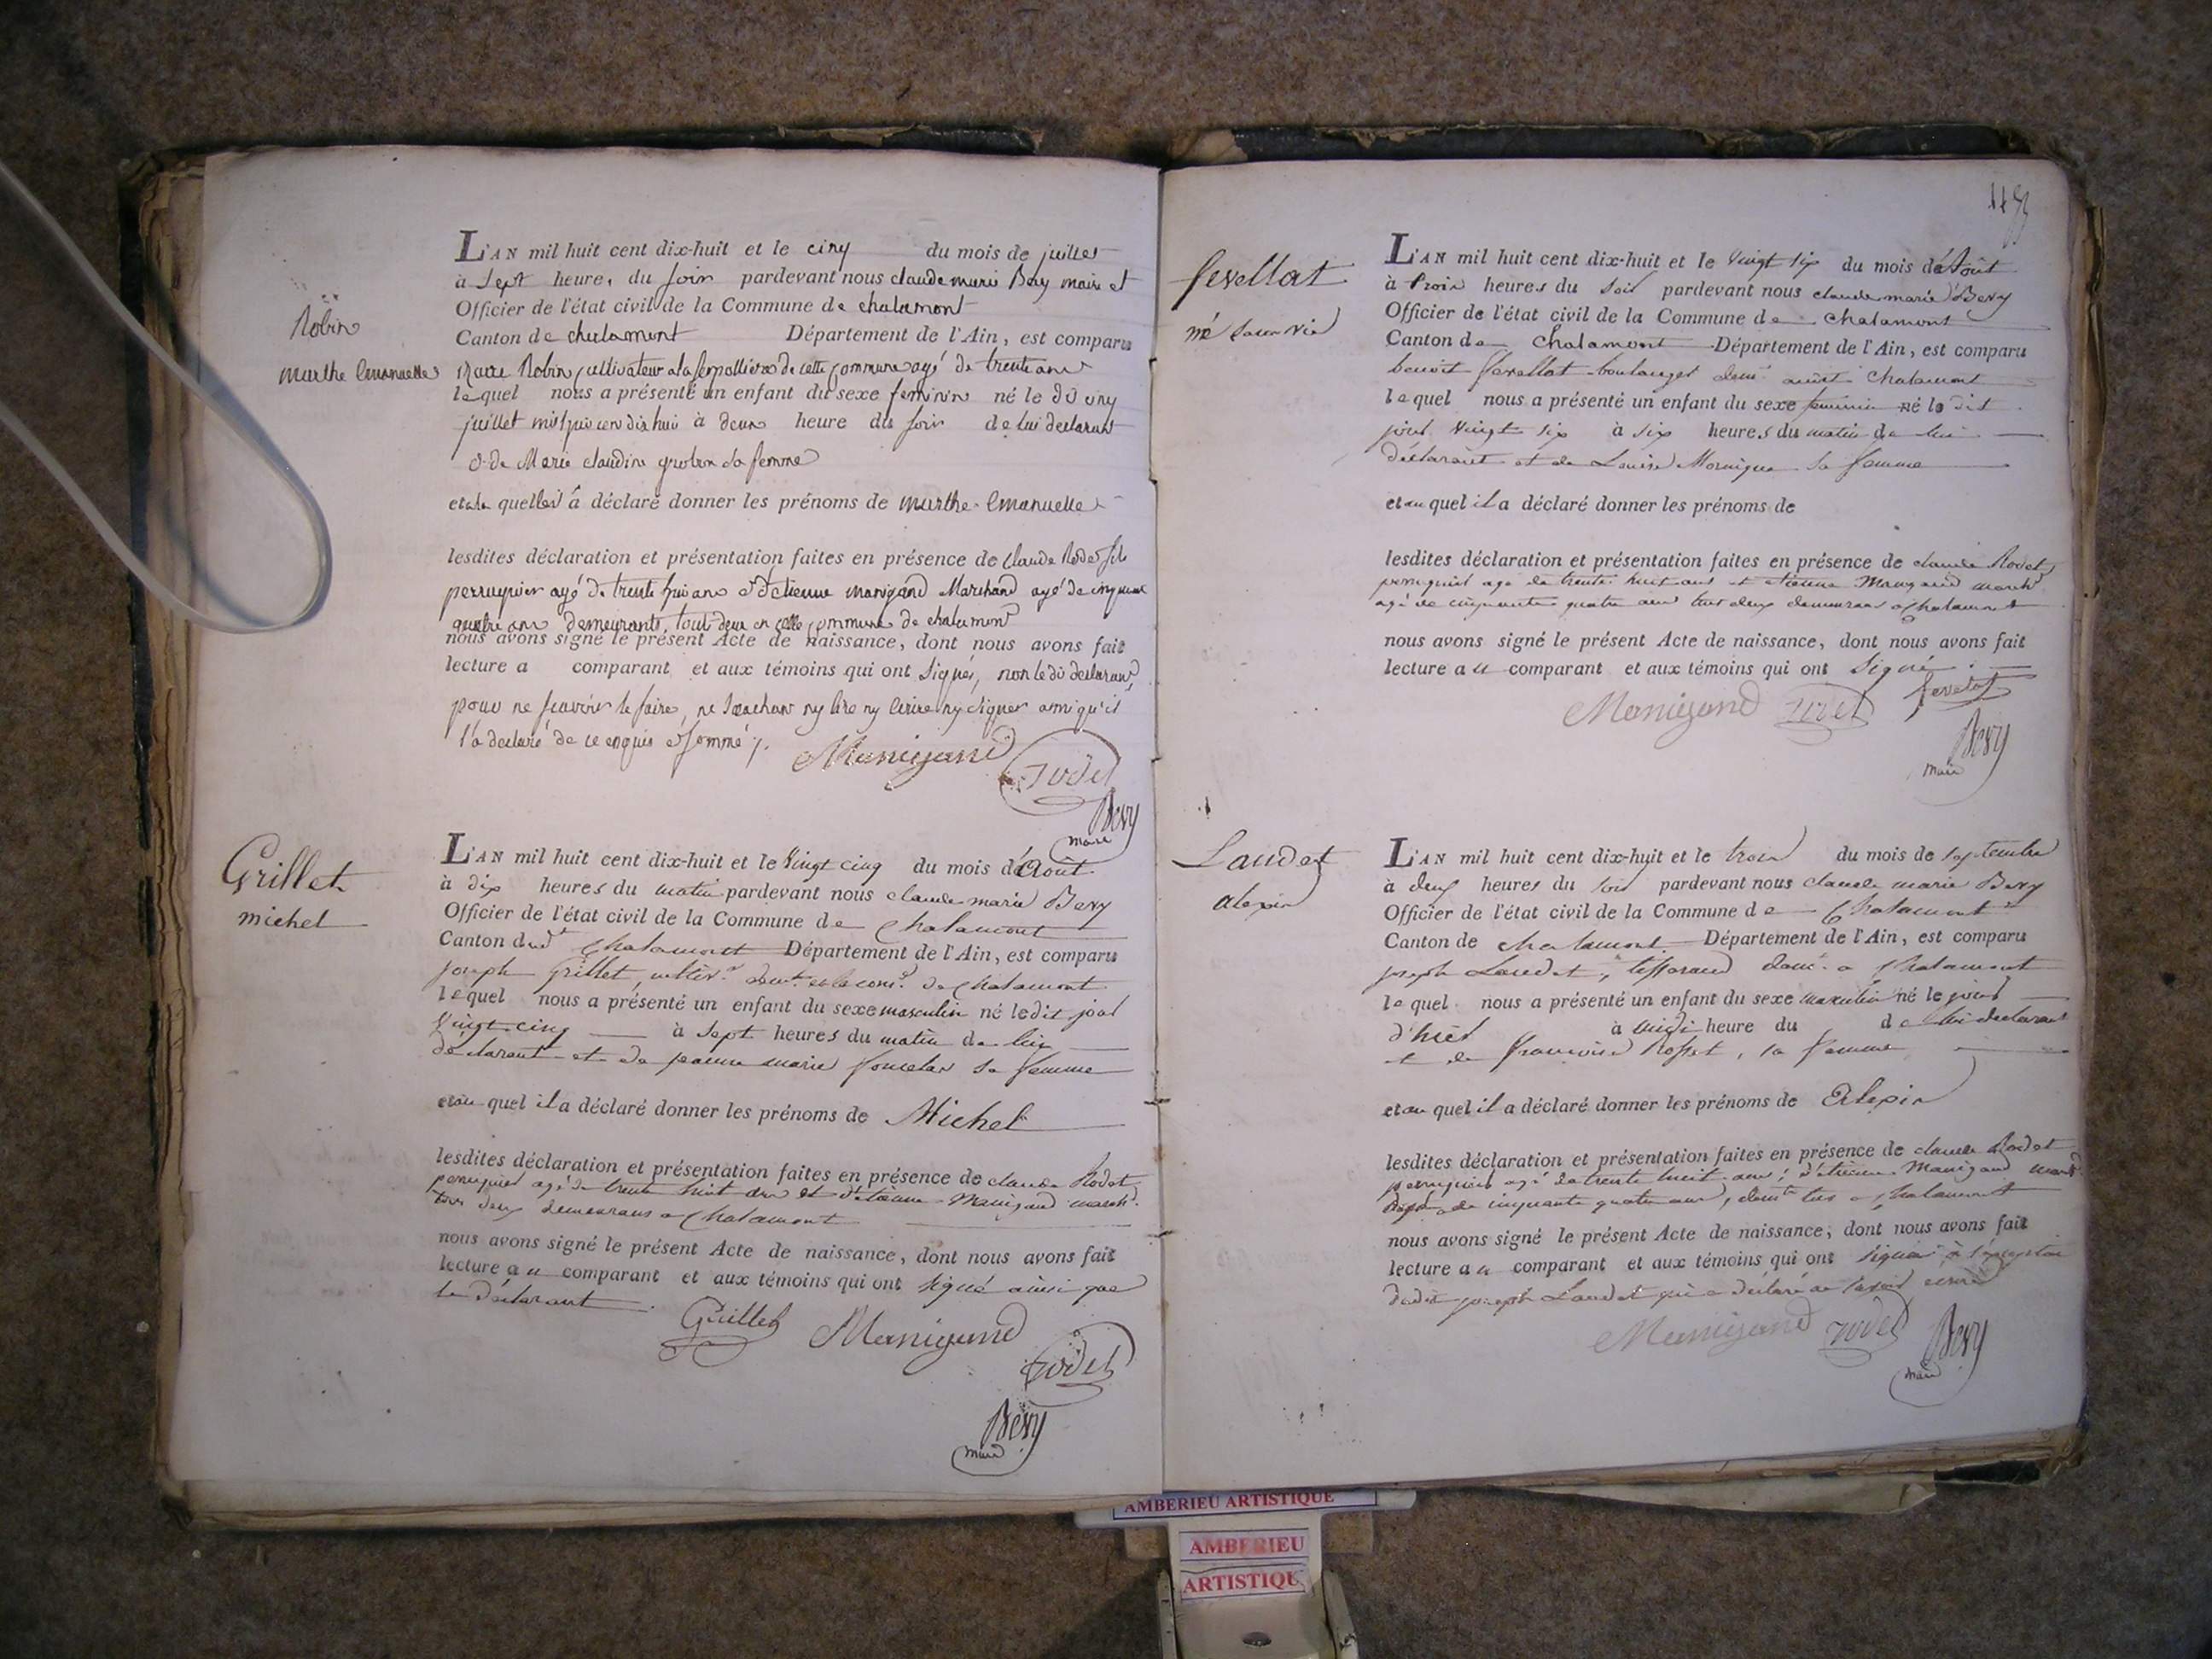 Robin
Marthe Emanuelle
L'AN mil huit cent dix-huit et le cinq du mois de juillet
à Sept heures du soir pardevant nous claude marie Bevy maire et
Officier de l'état civil de la Commune de chalamont
Canton de chalamont Département de l'Ain, est comparu
Robin cultivateur a la de cette commune agé de trente ans
lequel nous a présenté un enfant du sexe feminin né le dit cinq
juillet mil huit cen dix huit à deux heure du soir de lui declarant
& de Marie claudine grobon sa femme
et a la quelle il a déclaré donner les prénoms de Marthe Emanuelle
lesdites déclaration et présentation faites en présence de Claude Rodet fils
perruquier agé de trente huit ans & d'Etienne Manigand Marchand agé de cinquante
quatre ans demeurants tout deux en cette commune de chalamont
nous avons signé le présent Acte de naissance, dont nous avons fait
lecture a comparant et aux témoins qui ont signés, non le dit declarant
pour ne scavoir le faire, ne sachant ny lire ny ecrire ny signer ainsi qu'il
l'a declaré de ce enquis & sommé
Manigand
Rodet
Bevy
maire
Grillet
michel
L'AN mil huit cent dix-huit et le Vingt cinq du mois d'Août
à dix heures du matin pardevant nous claude marie Bevy
Officier de l'état civil de la Commune de Chalamont
Canton dud.t Chalamont Département de l'Ain, est comparu
joseph Grillet, cultiv.r dem.t en la com.e de Chalamont
lequel nous a présenté un enfant du sexe masculin né ledit jour
Vingt cinq à Sept heures du matin de lui
déclarant et de jeanne marie sa femme
et au quel il a déclaré donner les prénoms de Michel
lesdites déclaration et présentation faites en présence de claude Rodet
perruquier agé de trente huit ans et d'étienne Manigand march.d
tous deux demeurans a Chalamont
nous avons signé le présent Acte de naissance, dont nous avons fait
lecture au comparant et aux témoins qui ont signé ainsi que
le déclarant
Grillet
Manigand
Rodet
Bevy
maire
fevellat
né sans vie
L'AN mil huit cent dix-huit et le Vingt six du mois d'Août
à trois heures du soir pardevant nous claude marie Bevy
Officier de l'état civil de la Commune de Chalamont
Canton de Chalamont Département de l'Ain, est comparu
benoit fevellat boulanger dem.t audit Chalamont
lequel nous a présenté un enfant du sexe feminin né le dit
jour Vingt six à six heures du matin de lui
déclarant et de Louise sa femme
et au quel il a déclaré donner les prénoms de
lesdites déclaration et présentation faites en présence de claude Rodet
perruquier agé de trente huit ans et étienne Manigand march.d
agé de cinquante quatre ans tous deux demeurans a Chalamont
nous avons signé le présent Acte de naissance, dont nous avons fait
lecture au comparant et aux témoins qui ont signé
Manigand
Rodet
fevelat
Bevy
maire
Laudet
alexis
L'AN mil huit cent dix-huit et le trois du mois de septembre
à deux heures du soir pardevant nous claude marie Bevy
Officier de l'état civil de la Commune de Chalamont
Canton de chalamont Département de l'Ain, est comparu
joseph Laudet, tisserand dem.t a Chalamont
lequel nous a présenté un enfant du sexe masculin né le jour
d'hier à midi heure du de lui declarant
et de françoise Rosset, sa femme
et au quel il a déclaré donner les prénoms de Alexis
lesdites déclaration et présentation faites en présence de claude Rodet
perruquier agé de trente huit ans, d'étienne Manigand march.d
agé de cinquante quatre ans, dem.t tous a Chalamont
nous avons signé le présent Acte de naissance, dont nous avons fait
lecture au comparant et aux témoins qui ont signés à l'exception
dudit joseph Laudet qui a déclaré ne savoir écrire
Manigand
Rodet
Bevy
maire
AMBERIEU ARTISTIQUE
AMBERIEU
ARTISTIQU